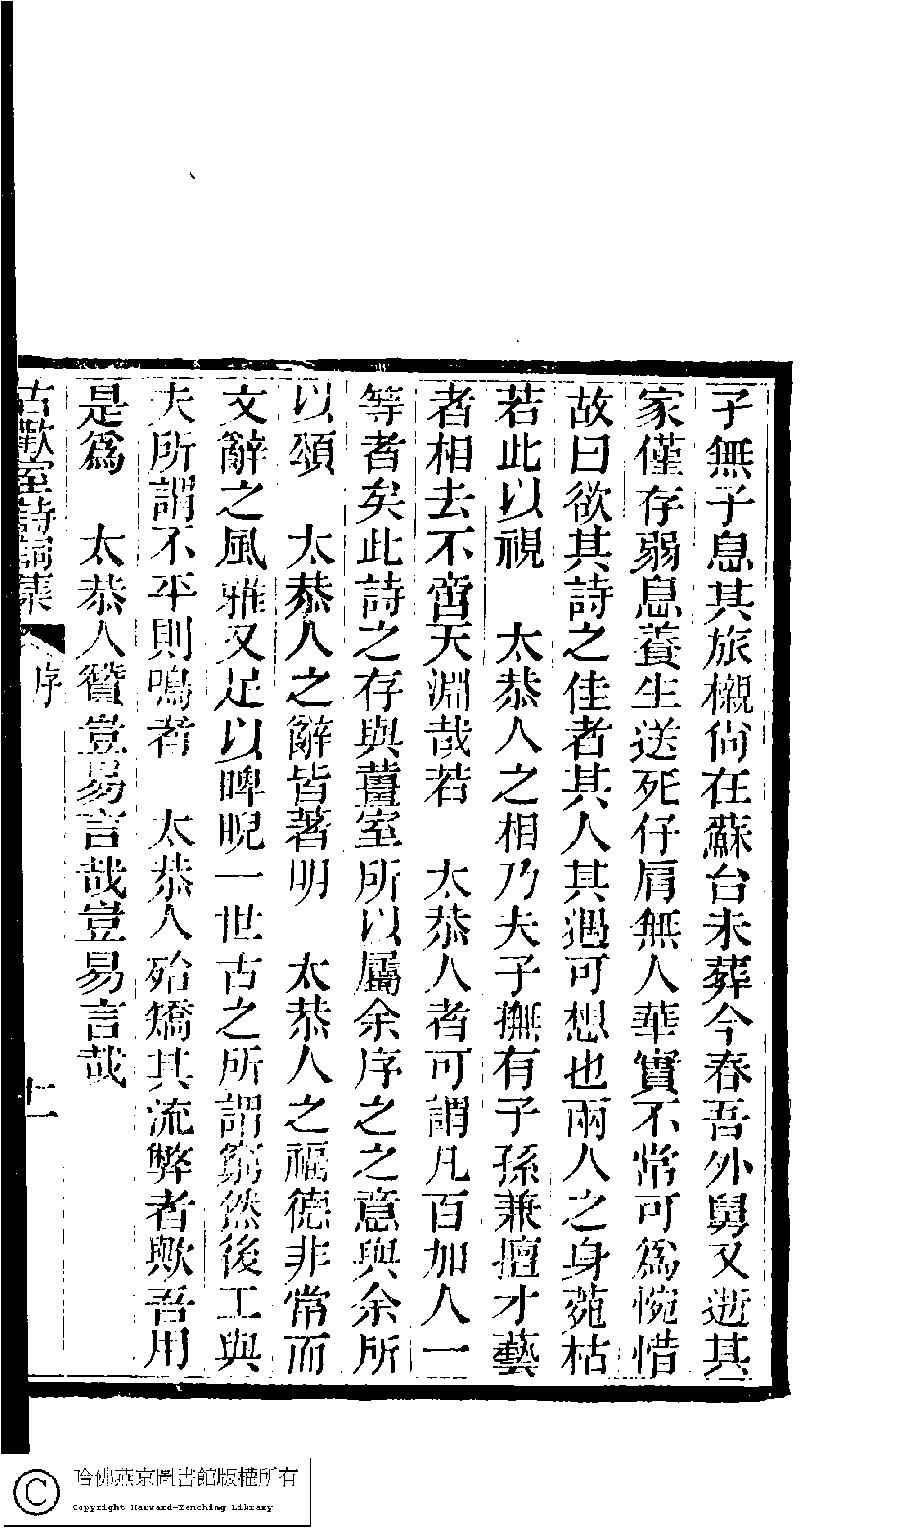 子無子息其旅櫬尙在蘇台未葬今春吾外舅又逝其
家僅存弱息養生送死仔肩無人華實不常可爲惋惜
故曰欲其詩之佳者其人其遇可想也兩人之身菀枯
若此以視　太恭人之相乃夫子撫有子孫兼擅才藝
者相去不啻天淵哉若　太恭人者可謂凡百加人一
等者矣此詩之存與薑室所以屬余序之之意與余所
以頌　太恭人之辭皆著明　太恭人之福德非常而
文辭之風雅又足以睥睨一世古之所謂窮然後工與
夫所謂不平則鳴者　太恭人殆矯其流弊者歟吾用
是爲　太恭人贊豈易言哉豈易言哉
古歡室詩詞集　序
哈佛燕京圖書館版權所有
Copyright Harvard-Yenching Library